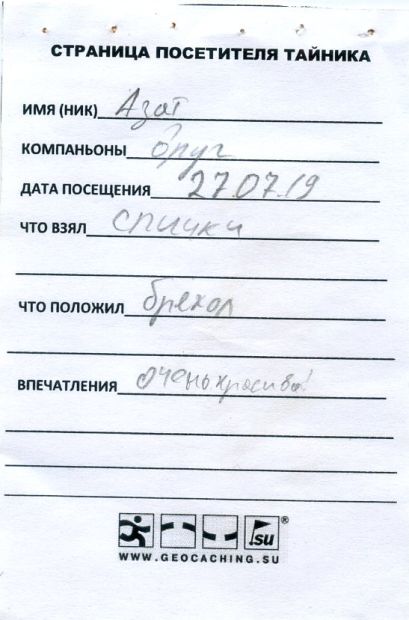 СТРАНИЦА ПОСЕТИТЕЛЯ ТАЙНИКА
ИМЯ (НИК) Азат
КОМПАНЬОНЫ друг
ДАТА ПОСЕЩЕНИЯ 27.07.19
ЧТО ВЗЯЛ спички
ЧТО ПОЛОЖИЛ брехол
ВПЕЧАТЛЕНИЯ очень красиво!
.su ®
WWW.GEOCACHING.SU